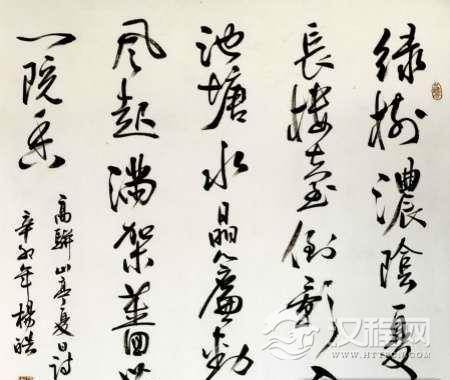 绿树濃陰夏
長樓臺倒影入
池塘水晶簾動
风起满架薔薇
一院香
高駢山亭夏日诗
辛卯年楊
汉程网
WWW.HTTPCN.COM